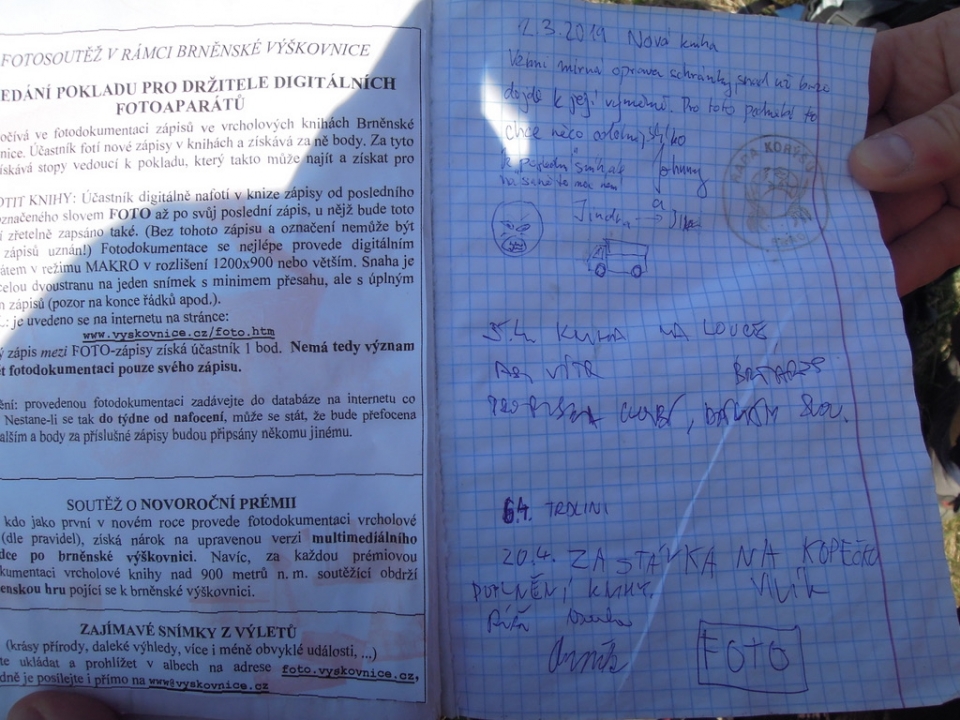 FOTOSOUTĚŽ V RÁMCI BRNĚNSKÉ VÝŠKOVNICE
EDÁNÍ POKLADU PRO DRŽITELE DIGITÁLNÍCH
FOTOAPARÁTŮ
očívá ve fotodokumentaci zápisů ve vrcholových knihách Brněnské
nice. Účastník fotí nové zápisy v knihách a získává za ně body. Za tyto
ískává stopy vedoucí k pokladu, který takto může najít a získat pro
OTIT KNIHY: Účastník digitálně nafotí v knize zápisy od posledního
označeného slovem FOTO až po svůj poslední zápis, u nějž bude toto
í zřetelně zapsáno také. (Bez tohoto zápisu a označení nemůže být
zápisů uznán!) Fotodokumentace se nejlépe provede digitálním
átem v režimu MAKRO v rozlišení 1200x900 nebo větším. Snaha je
celou dvoustranu na jeden snímek s minimem přesahu, ale s úplným
n zápisů (pozor na konce řádků apod.).
: je uvedeno se na internetu na stránce:
www.vyskovnice.cz/foto.htm
ý zápis mezi FOTO-zápisy získá účastník 1 bod. Nemá tedy význam
t fotodokumentaci pouze svého zápisu.
ění: provedenou fotodokumentaci zadávejte do databáze na internetu co
Nestane-li se tak do týdne od nafocení, může se stát, že bude přefocena
alším a body za příslušné zápisy budou připsány někomu jinému.
SOUTĚŽ O NOVOROČNÍ PRÉMII
kdo jako první v novém roce provede fotodokumentaci vrcholové
(dle pravidel), získá nárok na upravenou verzi multimediálního
dce po brněnské výškovnici. Navíc, za každou prémiovou
kumentaci vrcholové knihy nad 900 metrů n. m. soutěžící obdrží
enskou hru pojící se k brněnské výškovnici.
ZAJÍMAVÉ SNÍMKY Z VÝLETŮ
(krásy přírody, daleké výhledy, více i méně obvyklé události, ...)
te ukládat a prohlížet v albech na adrese foto.vyskovnice.cz,
dně je posílejte i přímo na www@vyskovnice.cz
2.3.2019 Nova kniha
Velmi mírná oprava schránky, snad už brzo
dojde k její výměně. Pro toto podnebí to
chce něco odolnějšího
Johnny
Jindra a
KNIHA NA LOUCE
VÍTR
6.4. TRDLINI
20.4. ZASTÁVKA NA KOPEČKU
DOPLNĚNÍ KNIHY. VLLÍK
FOTO